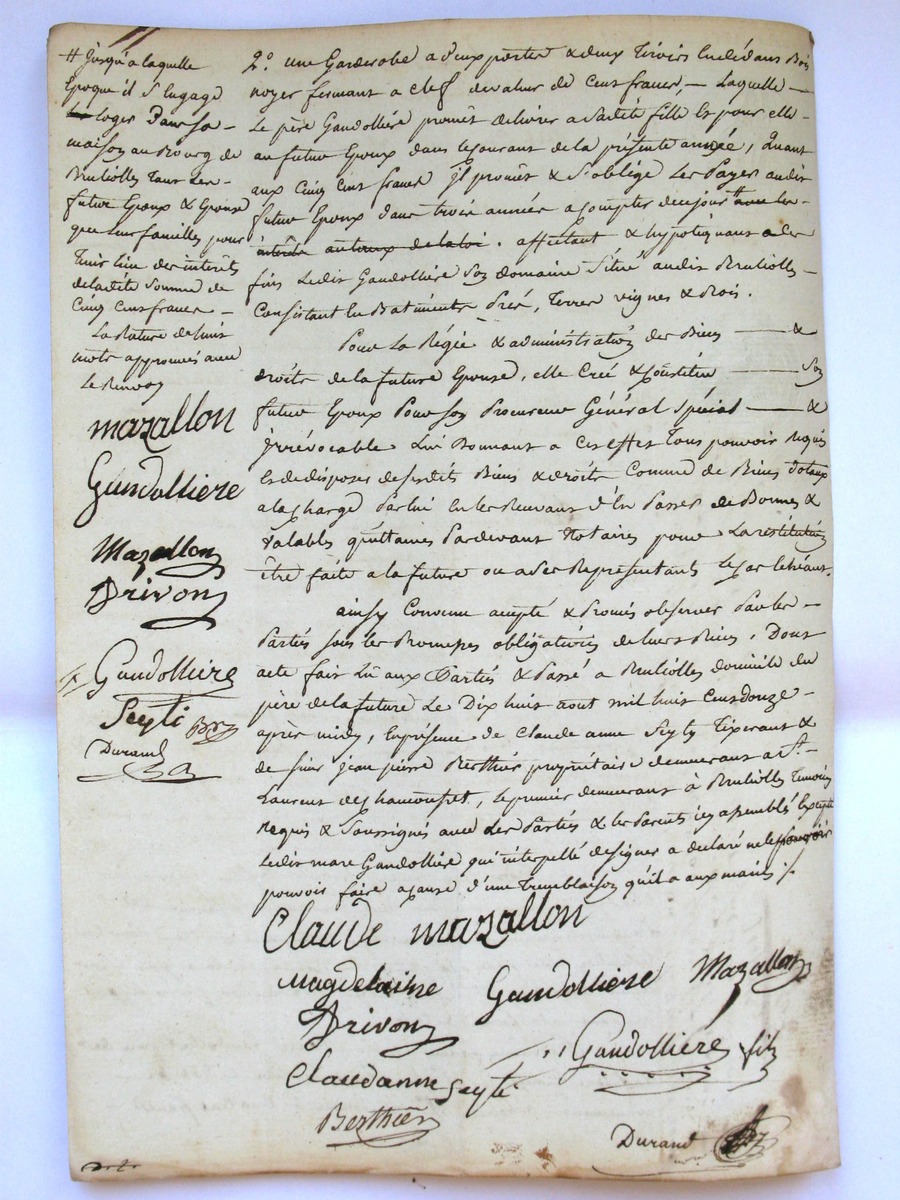 # jusqu'a laquelle
Epoque il s'engage
loger dans sa
maison au Bourg de
Brulioles tant les
futurs Epoux & Epouse
que leur familles pour
tenir lieu des interêts
de ladite somme de
Cinq cens francs
La Rature de huit
mots approuvés avec
Le Renvoy
mazallon
Gandolliere
Mazallon
Drivon
Gandolliere
Seyti
Durand
2º. une Garderobe a deux portes & deux Tiroirs en dedans Bois
noyer fermant a clef de valeur de Cent francs, Laquelle
Le père Gandollière promet delivrer a Sadite fille Et pour elle
au futur Epoux dans le courant de la présente année, Quant
aux Cinq Cens francs il promet & S'oblige Les Payer audit
futur Epoux dans trois années a compter de ce jour # avec les
interêts au taux de la loi. affectant & hypotéquant a ces
fins Ledit Gandollière Son domaine Situé audit Brulioles
Consistant en Batiments Preé, Terres vignes & Bois.
Pour La Régie & administration des Biens &
droits de la future Epouse, elle Creé & Constitue Son
futur Epoux Pour son Procureur Général Spécial &
Irrévocable Lui Donnant a Cet effet Tous pouvoir requis
Et de disposer de sesdits Biens & droits Comme de Biens dotaux
a la charge Par lui en les Recevant d'En Passer de Bonnes &
Valables quittances Pardevant Notaires pour La restitution
être faite a la future ou a Ses Représentants Le cas échéant.
ainsy Convenu accepté & Promis observer Par les
Parties sous les Promesses obligatoires de leurs Biens. Dont
acte fait Lû aux Partiés & Passé a Brulioles domicile du
père de la future Le Dix huit aout mil huit Cens douze
après midy, En présence de Claude anne Seyty Tixerant &
de sieur jean pierre Berthier propriétaire demeurant a St.
Laurent de Chamousset, le premier demeurant à Brulioles Temoins
requis & Soussignés avec Les Parties & les Parents icy assemblés Excepté
Ledit marc Gandollière qui interpellé de signer a declaré ne le pouvoir
pouvoir faire a cause d'une Tremblaison qu'il a aux mains ./.
Claude mazallon
magdelainne Gandolliese Mazallon
Drivon
Gandolliere fils
Claudanne Seyti
Berthier
Durand